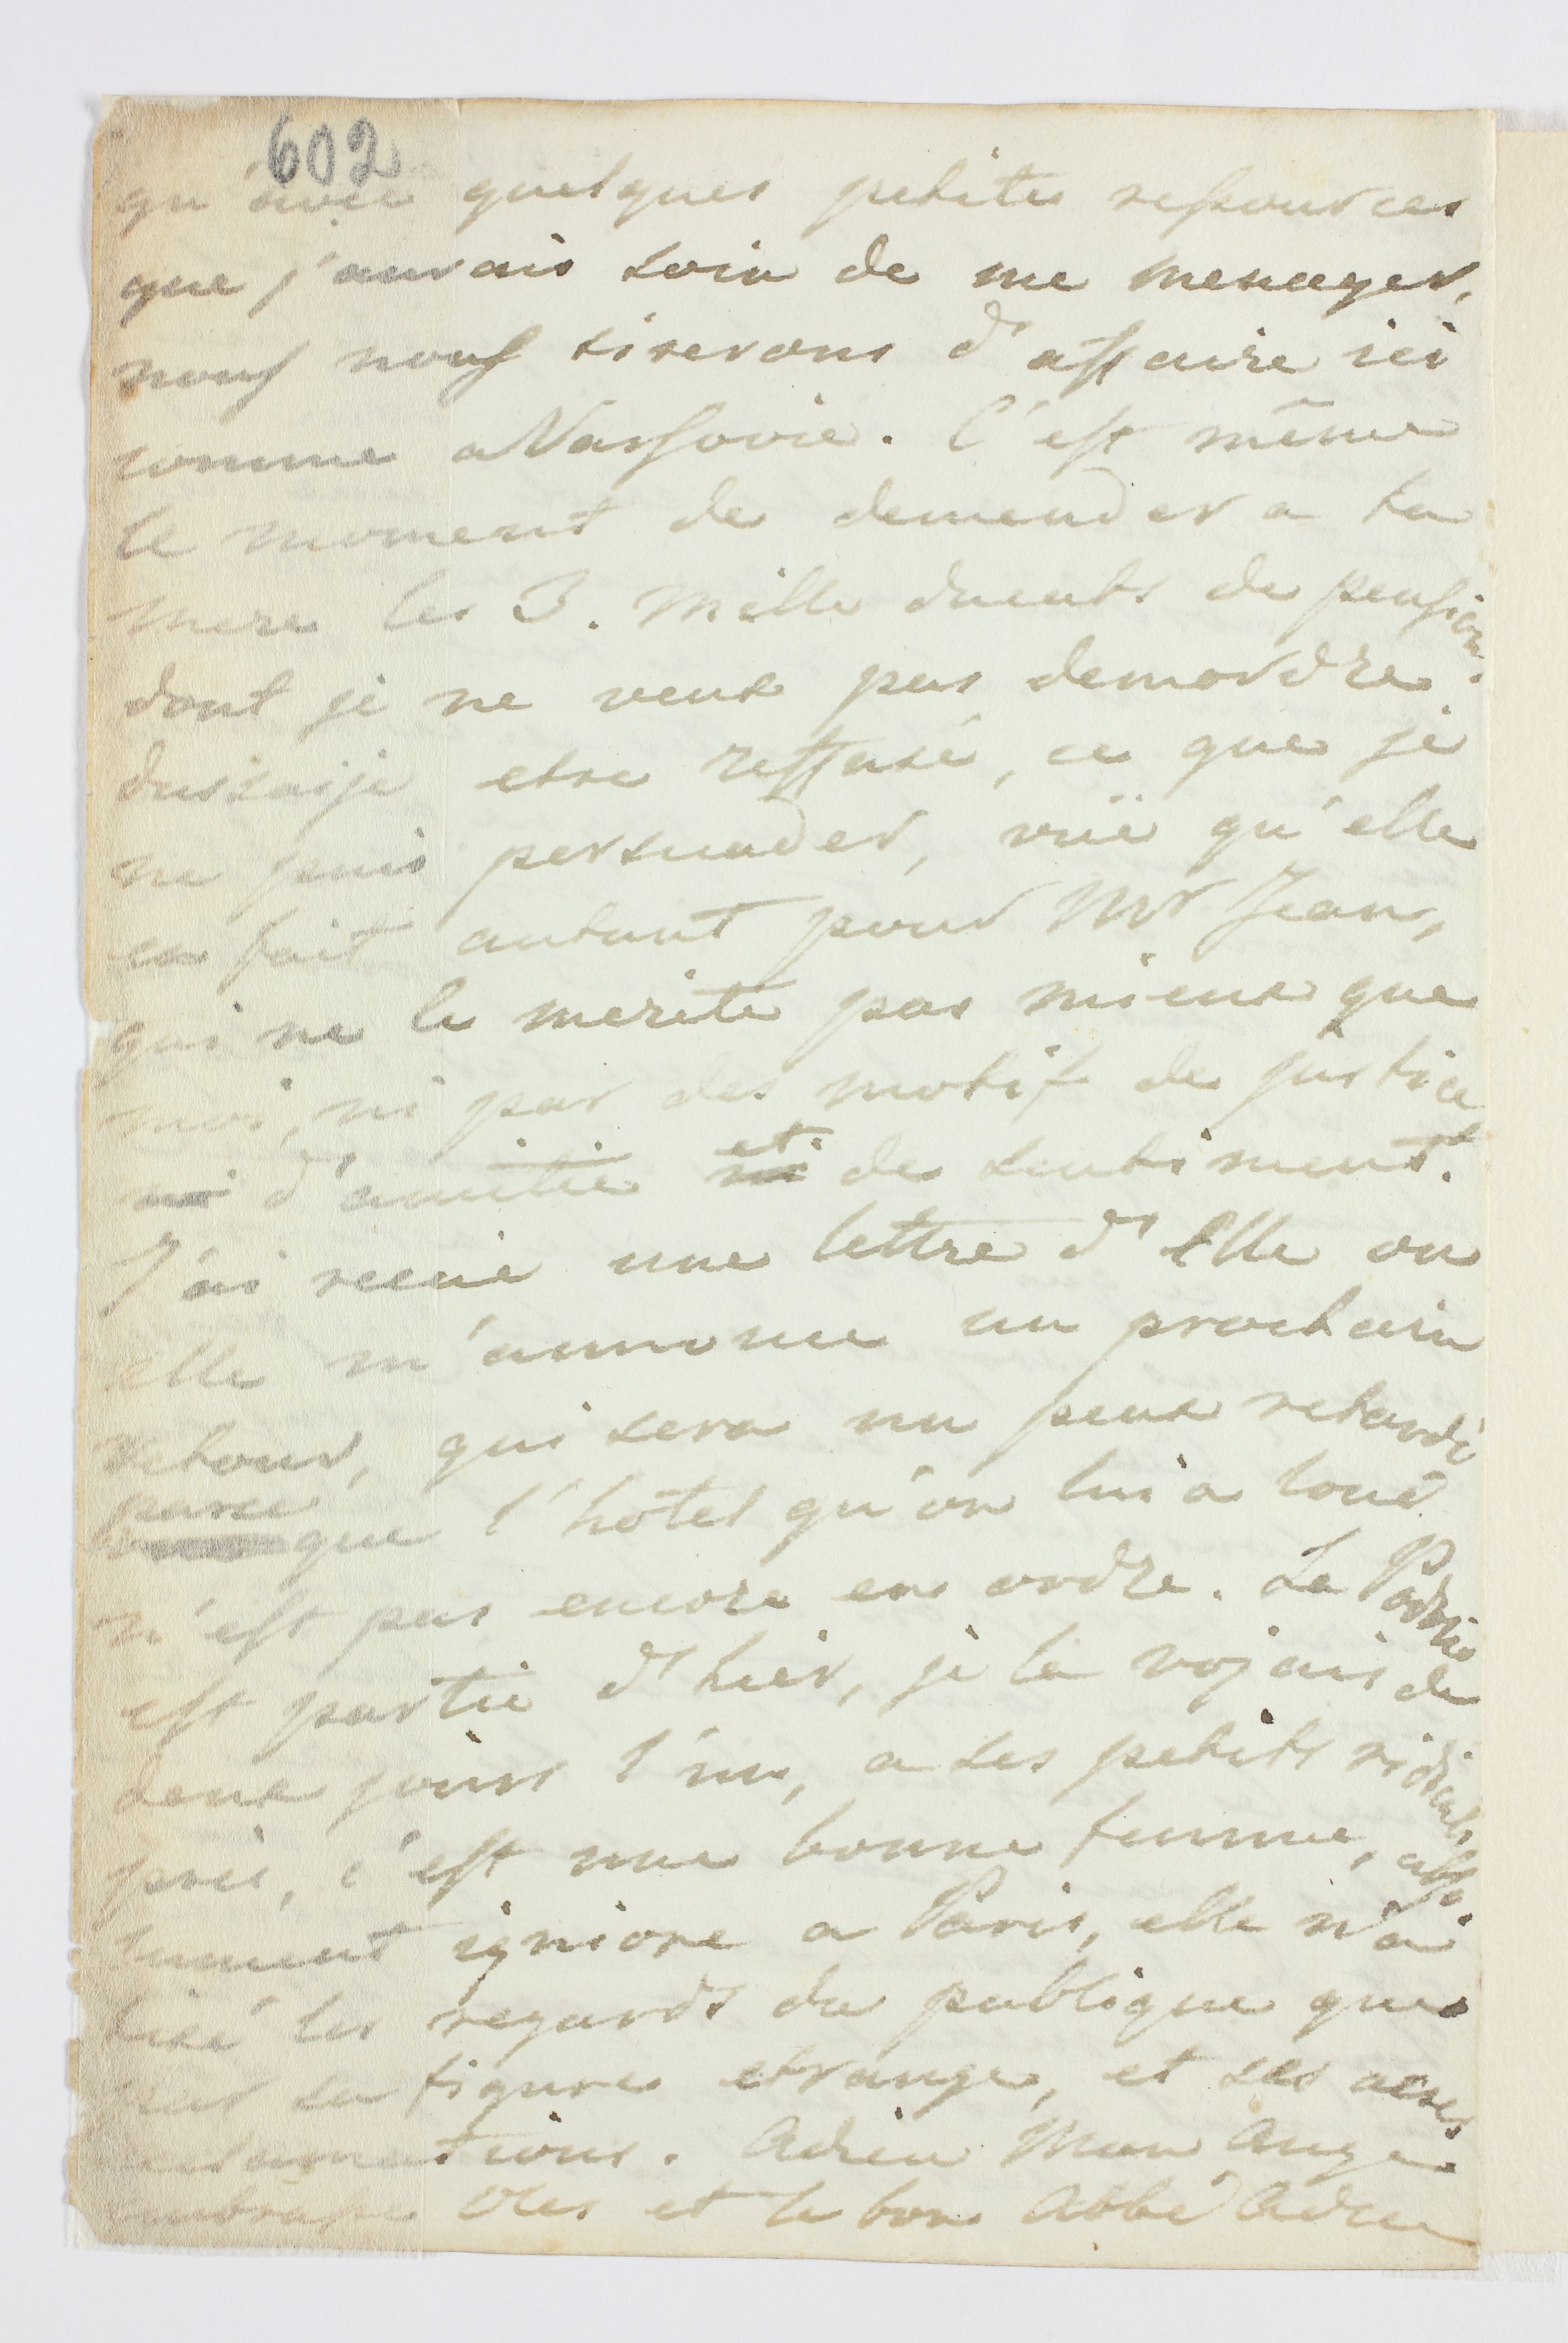 602
qu'avec quelques petites ressources
que j'aurais soin de me menager,
nous nous tirerons d'affaire ici
comme a Varsovie. C'est même
le moment de demender a ta
mere les 3. Mille ducats de pension.
dont je ne veux pas demordre
dussaije etre reffusé, ce que je
ne puis persuader, vüe qu'elle
en fait autant pour Mr Jean,
qui ne le merite pas mieux que
moi, ni par des motifs de justice
ni d'amitie et ni de sentiment.
J'ai recue une lettre d'Elle ou
elle m'annonce un prochain
retour, qui sera un peux retardé
parce que l'hôtel qu'on lui a loué
n'est pas encore en ordre. La
est partie d'hier, je la vojais de
deux jours l'un, a ses petits ridicules
près, c'est une bonne femme, abso-
lument igniore a Paris, elle n'a
tiré les regards du publique que
par sa figure etrange, et ses
. Adieu Mon Ange
embrasse et le bon Abbé Adieu